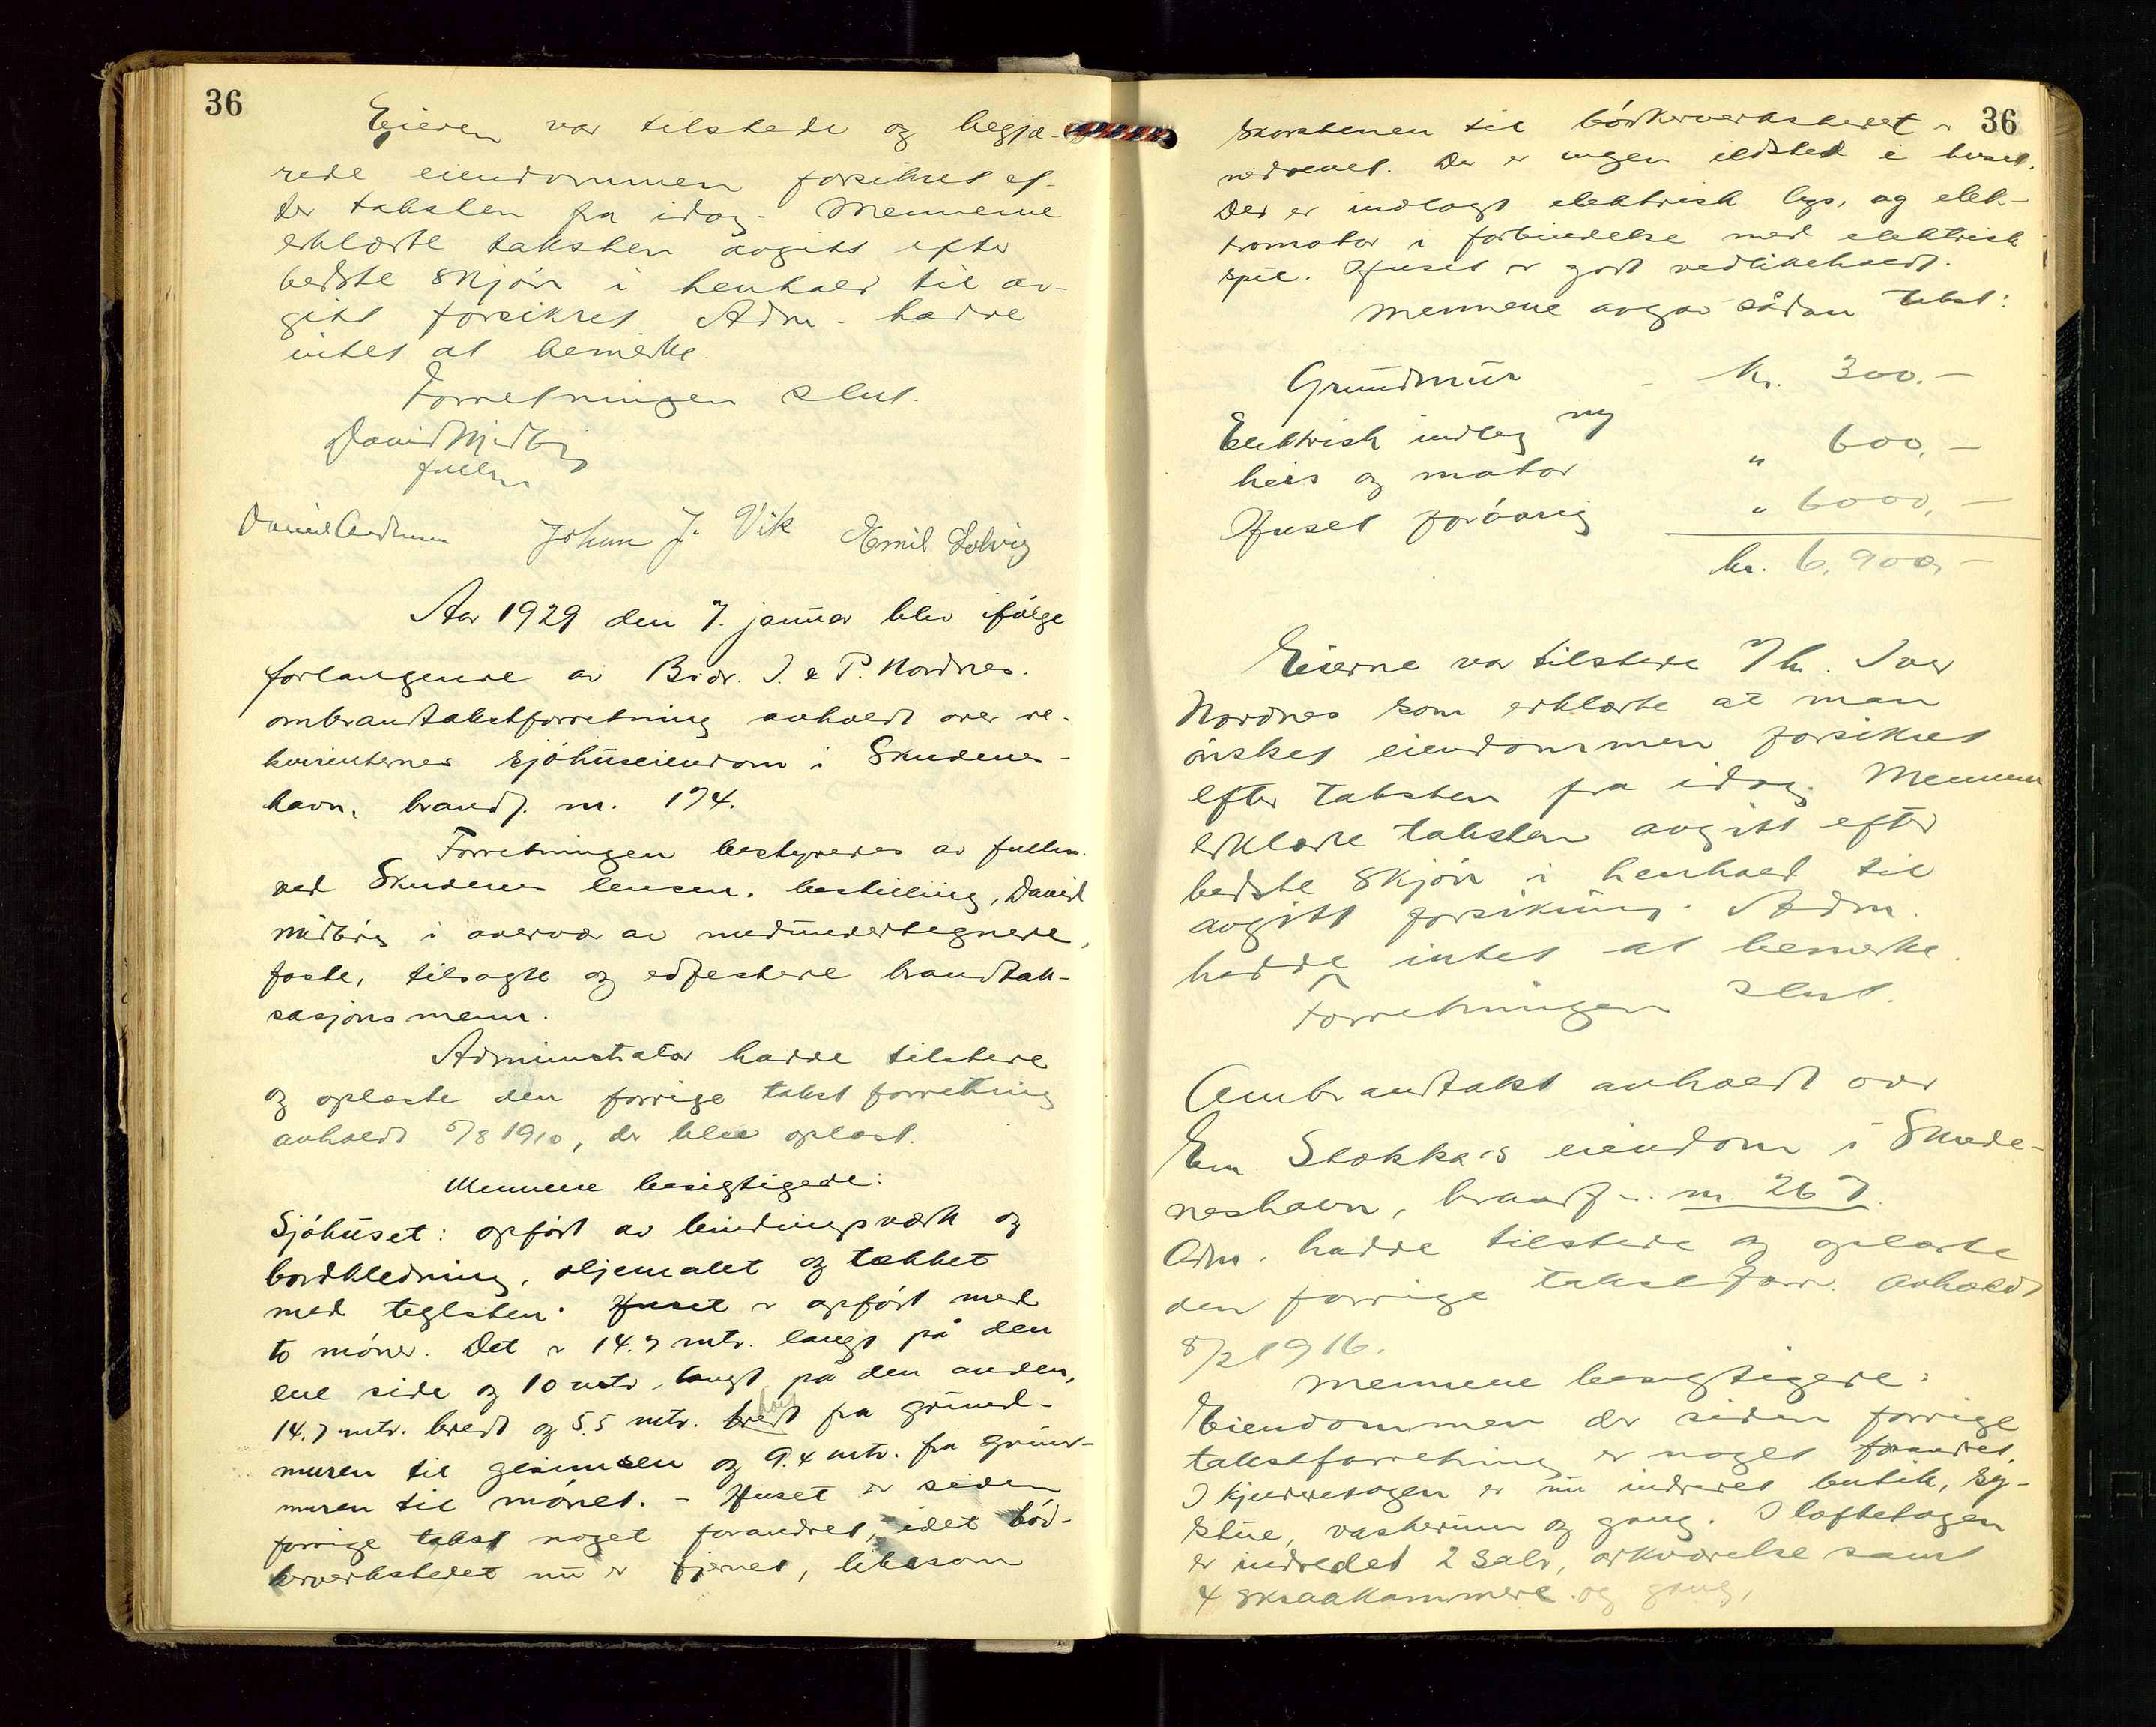 36
Eieren var tilstede og begjæ-
rede eiendommen forsikret ef-
ter taksten fra idag. Mennene
erklærte taksten avgitt efter
bedste skjön i henhold til av-
gitt forsikret. Adm. hadde
intet at bemerke.
Forretningen slut.
David Midbö
fullm
Daniel Andersen Johan J. Vik Emil Solvig
Aar 1929 den 7. januar blev ifölge
forlangende av Brdr. I. & P. Nordnes.
ombrandtakstforretning avholdt over re-
kvirenternes sjöhuseiendom i Skudenes-
havn, brandf. nr. 174.
Forretningen bestyredes av fullm.
ved Skudenes lensm. bestilling, David
Midbö i overvær av medundertegnede,
faste, tilsagte og edfestede brandtak-
sasjonsmenn.
Administrator hadde tilstede
og oplæste den forrige takst forretning
avholdt 5/8 1910, der blev oplæst.
Mennene besigtigede:
Sjöhuset: opfört av bindingsværk og
bordkledning, oljemalet og tækket
med teglsten. Huset er opfört med
to möner. Det er 14.7 mtr. langt på den
ene side og 10 mtr. langt på den anden,
14.7 mtr. bredt og 5.5 mtr. bredt höit fra grund-
muren til gesimsen og 9.4 mtr. fra grund-
muren til mönet. - Huset er siden
forrige takst noget forandret, idet bød-
kerverkstedet nu er fjernet, likesom
36
skorstenen til bödkerverkstedet er
nedrevet. Der er ingen ildsted i huset.
Der er indlagt elektrisk lys, og elek-
tromotor i forbindelse med elektrisk
spil. Huset er godt vedlikeholdt.
Mennene avgav sådan takst:
Grundmur - kr. 300.-
Elektrisk indlæg ny
heis og motor " 600,-
Huset forövrig " 6000,-
kr. 6.900,-
Eierne var tilstede v/ hr. Iver
Nordnes som erklærte at man
önsket eiendommen forsikret
efter taksten fra idag. Mennene
erklærte taksten avgitt efter
bedste skjön i henhold til
avgitt forsikring. Adm.
hadde intet at bemerke.
Forretningen slut.
Ombrandtakst avholdt over
Em. Stokka's eiendom i Skude-
neshavn, brandf. nr. 267
Adm. hadde tilstede og oplæste
den forrige takstforr. avholdt
8/2 1916.
Mennene besigtigede:
Eiendommen der siden forrige
takstforretning er noget forandret.
I kjelderetagen er nu indredet butik, sy-
stue, vaskerum og gang. I loftetagen
er indredet 2 sale, arkværelse samt
4 skraakammere og gang,